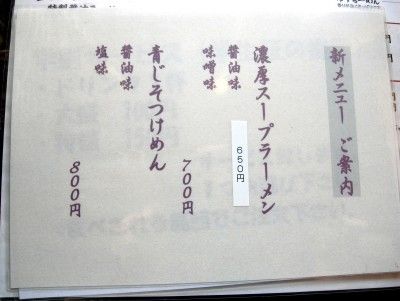 新メニュー ご案内
濃厚スープラーメン
醤油味
味噌味
650円
700円
青じそつけめん
醤油味
塩味
800円